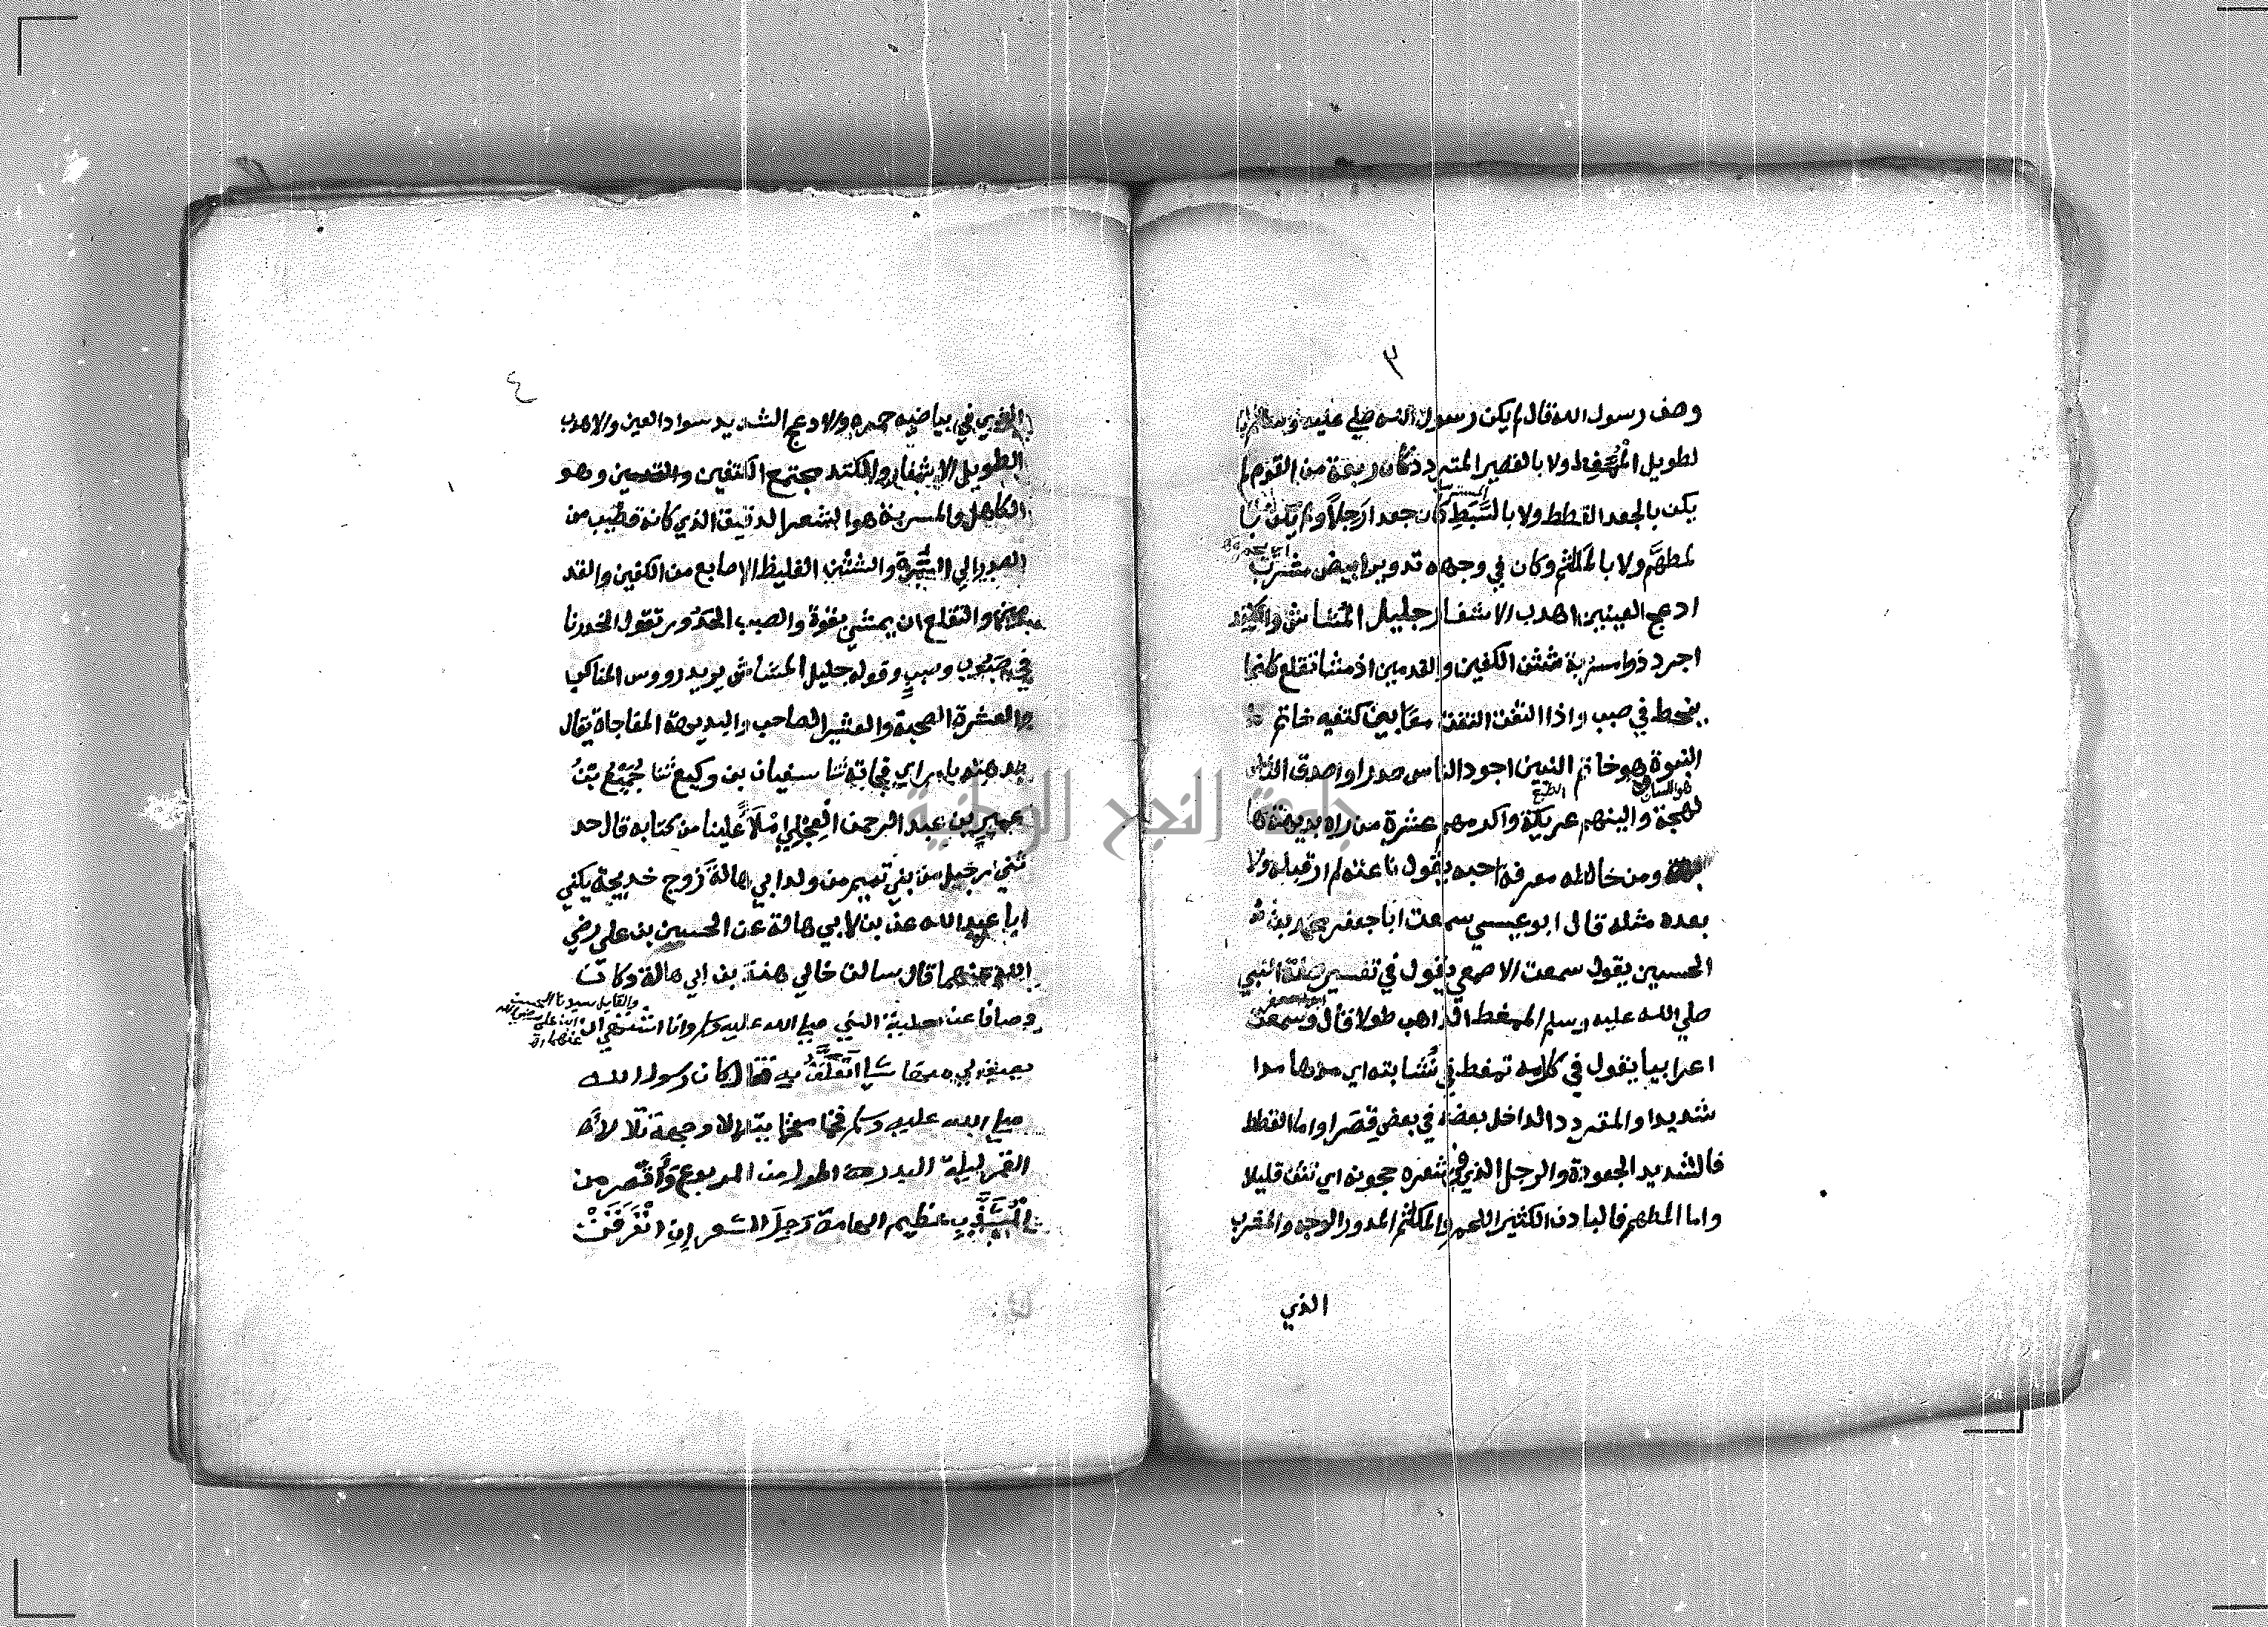 ٣
وصف رسول الله قال لم يكن رسول الله صلي عليه وسلم با
لطويل المُمَّغِط ولا بالقصير المتردد وكان ربعة من القوم لم
يكن بالجعد القطط ولا بالسَّبَطِ كان جعدا رَجِلاً ولم يكن با
المسترسل
لمطهَّم ولا بالمُكَلْثَم وكان في وجهه تدوير ابيض مشرَب
اي بحمرة
ادعج العينين اهدب الاشفار جليل المُشَاش والكتد
اجرد ذوا مسربة شثن الكفين والقدمين اذ مشا تقلع كانما
ينحط في صبب واذا التفت التفت معًا بين كتفيه خاتم
النبوة وهو خاتم النبين اجود الناس صدرا واصدق الناس
هو اللسان
الطبع
لهجة والينهم عريكة واكرمهم عشرة من راه بديهة ها
ومن خالطه معرفة احبه يقول ناعته لم ار قبله ولا
بعده مثله قال ابو عيسي سمعت ابا جعفر محمد بن
الحسين يقول سمعت الاصمعي يقول في تفسير صفة النبي
صلي الله عليه وسلم الممغط الذاهب طولا قال وسمعت
اعرابيا يقول في كلامه تمغط في نُشّابته اي مدها مدا
شديدا والمتردد الداخل بعضه في بعض قِصَرا واما القطط
فالشديد الجعودة والرجل الذي في شعره حجونة اي تثن قليلا
واما المطهم فالبادن الكثير اللحم والمكلثم المدور الوجه والمشرب
الذي
٤
الذي في بياضه حمره والادعج الشديد سواد العين والاهدب
الطويل الاشفار والكتد مجتمع الكتفين والقدمين وهو
الكاهل والمسربة هو الشعر الدقيق الذي كانه قضيب من
الصدر الي السُّرة والشثْن الغليظ الاصابع من الكفين والقد
مين والتقلع ان يمشي بقوة والصبب الحَدُور تقول انحدرنا
في صَبُوب وصبب وقوله جليل المشاش يريد رووس المناكب
والعشرة الصحبة والعشير الصاحب والبديهة المفاجاة يقال
بدهته بامر اي فجاته ثنا سفيان بن وكيع ثنا جُمَيْعُ بْنُ
عمير بن عبد الرحمن العِجْلِي امْلَاءً علينا من كتابه قال حد
ثني رجل من بني تميم من ولد ابي هالة زوج خديجة يكني
ابا عبد الله عن بن لابي هالة عن الحسين بن علي رضي
الله عنهما قال سالت خالي هند بن ابي هالة وكان
وصافا عن حلية النبي صلي الله عليه وسلم وانا اشتهي ان
والقايل سيدنا الحسين
ابن علي رضي الله
عنهما
يصف لي منها شيا اتَعَلَّقُ به فقال كان رسول الله
صلي الله عليه وسلم فخما مفخما يتلالا وجهه تلالأ
القمر ليلة البدر اطول من المربوع وأقصر من
المُشَذَّبِ عظيم الهامة رَجِلَ الشعر إنِ انْفَرَقَتْ
جامعة النجاح الوطنية